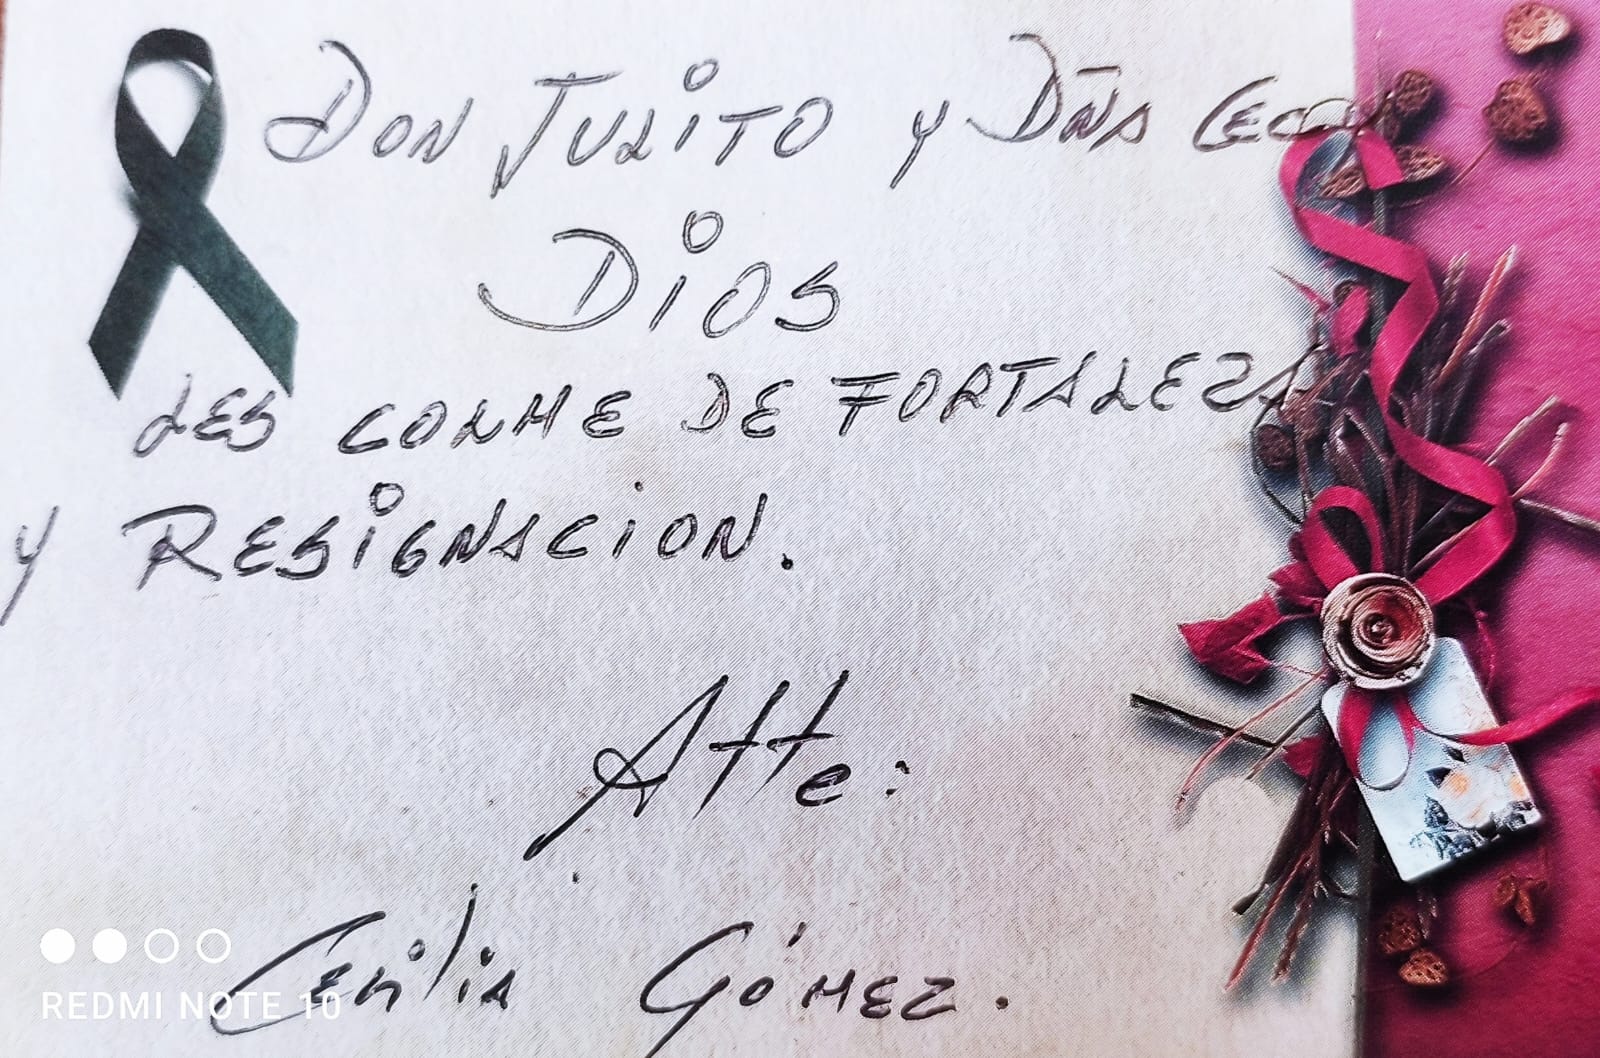 DON JULITO Y DÑA CECY
DIOS
LES COLME DE FORTALEZA
Y RESIGNACION.
Atte:
Cecilia Gómez.
REDMI NOTE 10